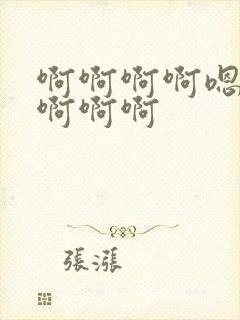 啊啊啊啊嗯
啊啊啊
張漲